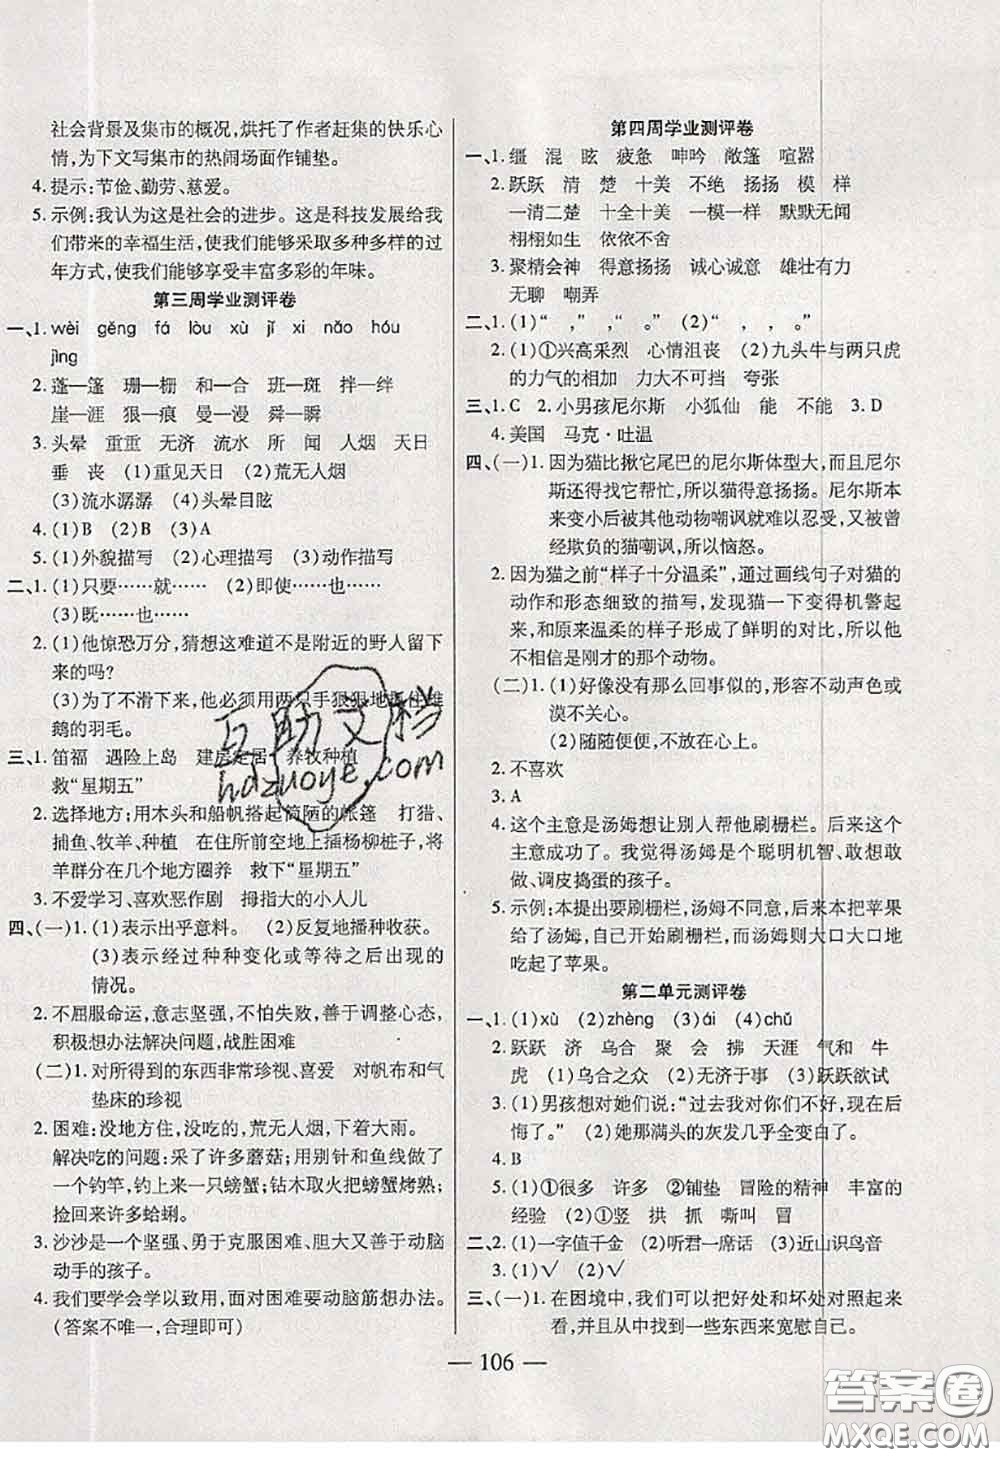 社会背景及集市的概况,烘托了作者赶集的快乐心
情,为下文写集市的热闹场面作铺垫。
4. 提示:节俭、勤劳、慈爱。
5. 示例:我认为这是社会的进步。这是科技发展给我
们带来的幸福生活,使我们能够采取多种多样的过
年方式,使我们能够享受丰富多彩的年味。
第三周学业测评卷
一、1. wèi gěng fá lòu xù jǐ xi nǎo hóu
jìng
2. 蓬—篷 珊—栅 和—合 班—斑 拌—绊
崖—涯 狠—痕 曼—漫 舜—瞬
3. 头晕 重重 无济 流水 所 闻 人烟 天日
垂 丧 (1)重见天日 (2)荒无人烟
(3)流水潺潺 (4)头晕目眩
4. (1)B (2)B (3)A
5. (1)外貌描写 (2)心理描写 (3)动作描写
二、1. (1)只要……就…… (2)即使……也……
(3)既……也……
2. (1)他惊恐万分,猜想这难道不是附近的野人留下
来的吗?
(3)为了不滑下来,他必须用两只手狠狠地抓住雄
鹅的羽毛。
三、1. 笛福 遇险上岛 建房定居 养牧种植
救“星期五”
2. 选择地方;用木头和船帆搭起简陋的帐篷 打猎、
捕鱼、牧羊、种植 在住所前空地上插杨柳桩子,将
羊群分在几个地方圈养 救下“星期五”
3. 不爱学习、喜欢恶作剧 拇指大的小人儿
四、(一)1. (1)表示出乎意料。 (2)反复地播种收获。
(3)表示经过种种变化或等待之后出现的
情况。
2. 不屈服命运,意志坚强,不怕失败,善于调整心态,
积极想办法解决问题,战胜困难
(二)1. 对所得到的东西非常珍视、喜爱 对帆布和气
垫床的珍视
2. 困难:没地方住,没吃的,荒无人烟,下着大雨。
解决吃的问题:采了许多蘑菇;用别针和鱼线做了
一个钓竿,钓上来一只螃蟹;钻木取火把螃蟹烤熟;
捡回来许多蛤蜊。
3. 沙沙是一个坚强、勇于克服困难、胆大又勇于动脑
动手的孩子。
4. 我们要学会学以致用,面对困难要动脑筋想办法。
(答案不唯一,合理即可)
第四周学业测评卷
一、1. 缰 混 眩 疲惫 呻吟 敞篷 喧嚣
2. 跃跃 清 楚 十美 不绝 扬扬 模 样
一清二楚 十全十美 一模一样 默默无闻
栩栩如生 依依不舍
3. 聚精会神 得意扬扬 诚心诚意 雄壮有力
无聊 嘲弄
二、1. (1)“ ,” “ 。” (2)“ , , 。”
2. (1)①兴高采烈 心情沮丧 (2)九头牛与两只虎
的力气的相加 力大不可挡 夸张
三、1. C 2. 小男孩尼尔斯 小狐仙 能 不能 3. D
4. 美国 马克·吐温
四、(一)1. 因为猫比揪它尾巴的尼尔斯体型大,而且尼尔
斯还得找它帮忙,所以猫得意扬扬。尼尔斯本
来变小后被其他动物嘲讽就难以忍受,又被曾
经欺负的猫嘲讽,所以恼怒。
2. 因为猫之前“样子十分温柔”,通过画线句子对猫的
动作和形态细致的描写,发现猫一下变得机警起
来,和原来温柔的样子形成了鲜明的对比,所以他
不相信是刚才的那个动物。
(二)1. (1)好像没有那么回事似的,形容不动声色或
漠不关心。
(2)随随便便,不放在心上。
2. 不喜欢
3. A
4. 这个主意是汤姆想让别人帮他刷栅栏。后来这个
主意成功了。我觉得汤姆是个聪明机智、敢想敢
做、调皮捣蛋的孩子。
5. 示例:本提出要刷栅栏,汤姆不同意,后来本把苹果
给了汤姆,自己开始刷栅栏,而汤姆则大口大口地
吃起了苹果。
第二单元测评卷
一、1. (1)xù (2)zhèng (3)ái (4)chǔ
2. 跃跃 济 乌合 聚 会 拂 天涯 气和 牛
虎 (1)乌合之众 (2)无济于事 (3)跃跃欲试
3. (1)男孩想对她们说:“过去我对你们不好,现在后
悔了。” (2)她那满头的灰发几乎全变白了。
4. B
5. (1)①很多 许多 ②铺垫 冒险的精神 丰富的
经验 (2)①竖 拱 抓 嘶叫 冒
二、2. (1)一字值千金 (2)听君一席话 (3)近山识鸟音
3. (1)√ (2)√
三、(一)1. 在困境中,我们可以把好处和坏处对照起来
看,并且从中找到一些东西来宽慰自己。
— 106 —
互助文档
hdzuoye.com
答案圈
MXQE.COM